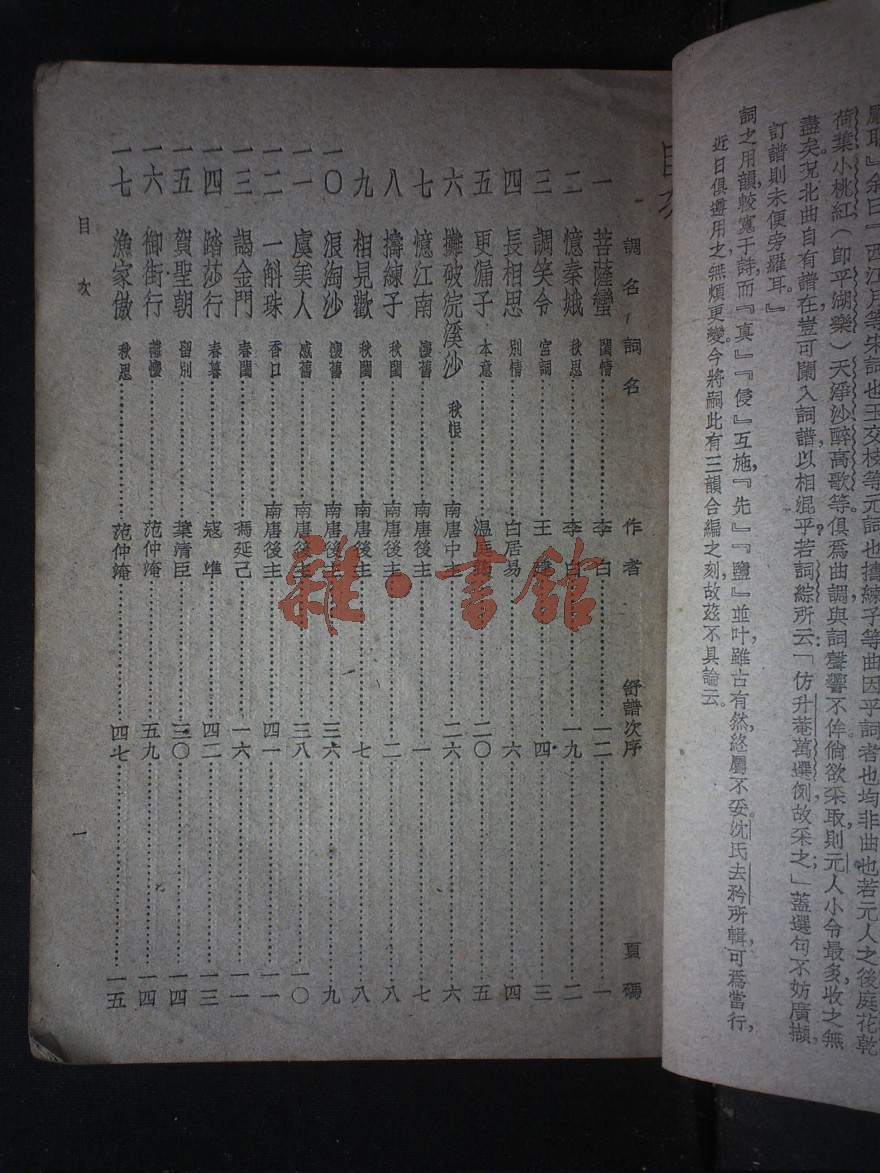 厰耶』余曰『西江月等宋詞也玉交枝等元詞也擣練子等曲因乎詞者也均非曲也若元人之後庭花乾
荷葉小桃紅(卽平湖樂)天淨沙醉高歌等俱爲曲調與詞聲響不侔倘欲采取則元人小令最多收之無
盡矣況北曲自有譜在豈可闌入詞譜以相混乎若詞綜所云「仿升菴萬選例故采之」蓋選句不妨廣擷,
訂譜則未便旁羅耳。』
詞之用韻較寬于詩而『真』『侵』互施,『先』『鹽』並叶雖古有然終屬不妥沈氏去矜所輯,可爲當行,
近日俱遵用之無煩更變今將嗣此有三韻合編之刻,故茲不具論云。
目次
調名/詞名 作者 舒譜次序 頁碼
一 菩薩蠻 閨情 李白 一二 一
二 憶秦娥 秋思 李白 一九 二
三 調笑令 宮詞 王建 四 三
四 長相思 別情 白居易 六 四
五 更漏子 本意 溫庭筠 二〇 五
六 攤破浣溪沙 秋恨 南唐中主 二六 六
七 憶江南 懷舊 南唐後主 一 七
八 擣練子 秋閨 南唐後主 二 八
九 相見歡 秋閨 南唐後主 七 八
一〇 浪淘沙 懷舊 南唐後主 三六 九
一一 虞美人 感舊 南唐後主 三八 一〇
一二 一斛珠 香口 南唐後主 四一 一一
一三 謁金門 春閨 馮延己 一六 一一
一四 踏莎行 春暮 寇準 四二 一三
一五 賀聖朝 留別 葉清臣 三〇 一四
一六 御街行 離懷 范仲淹 五九 一四
一七 漁家傲 秋思 范仲淹 四七 一五
目次 一
雜·書館